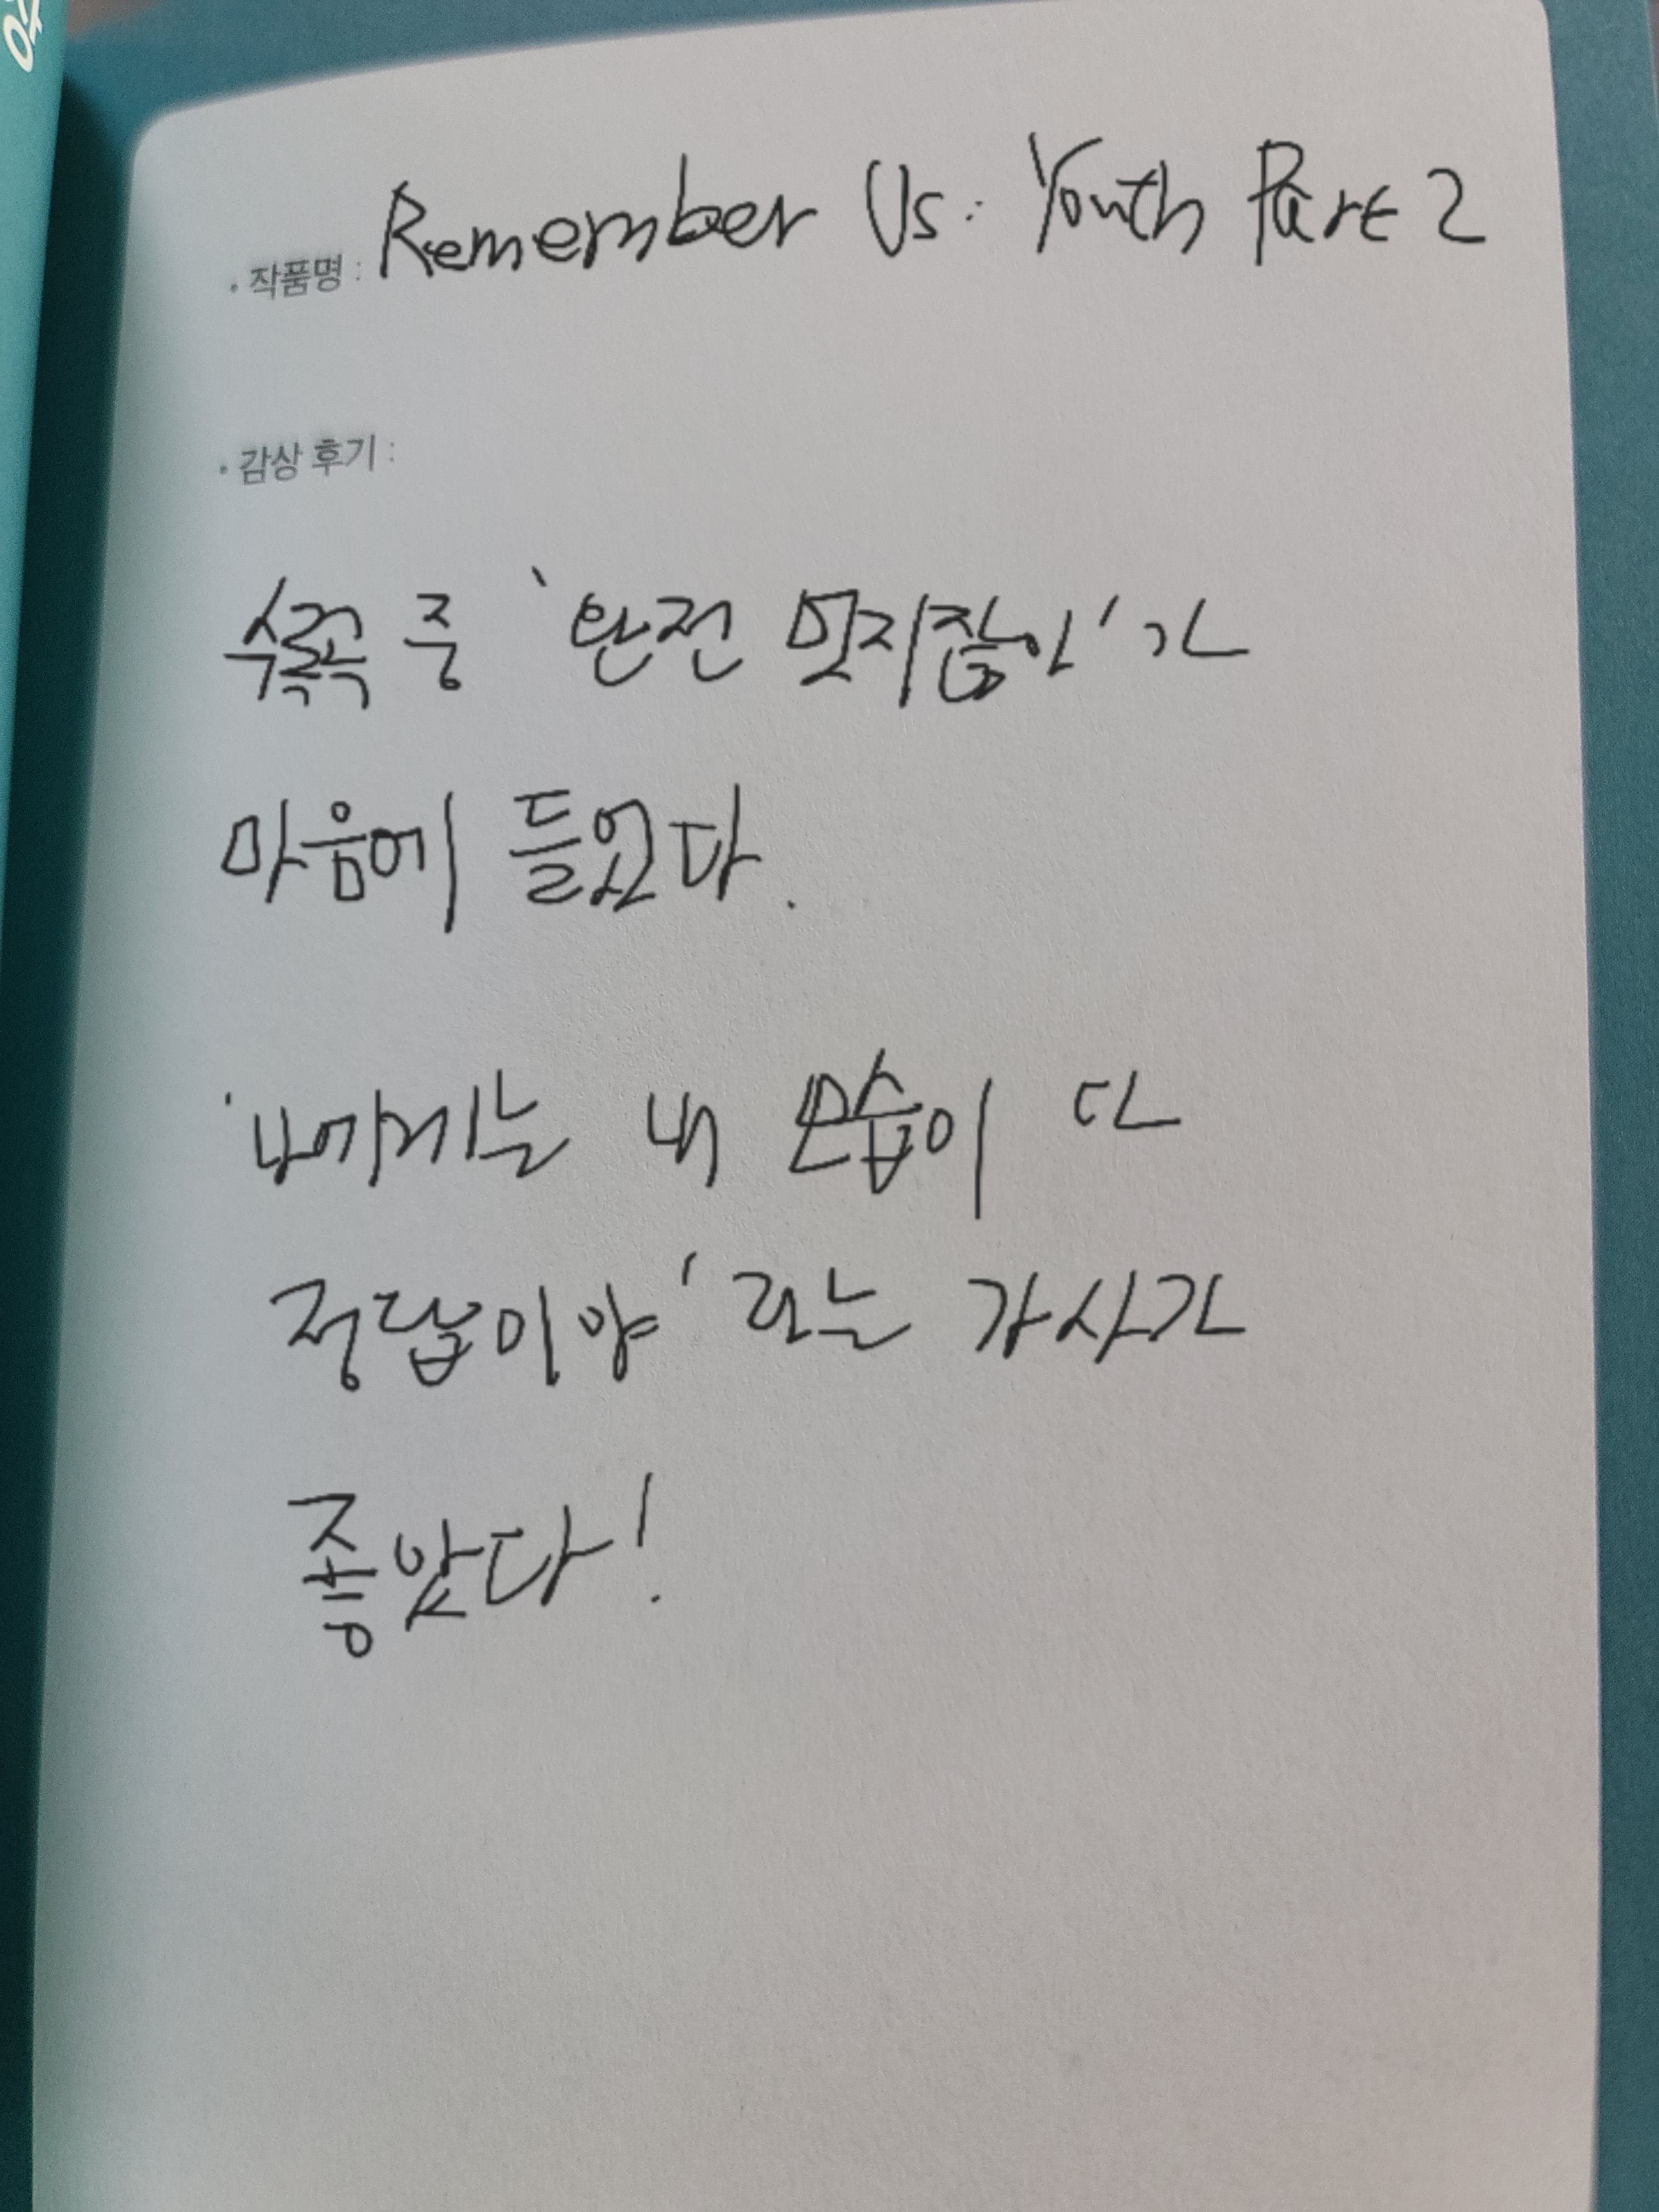 · 작품명 : Remember Us: Youth Part 2
· 감상 후기 :
수록곡 중 '완전 멋지잖아'가
마음에 들었다.
'나에게는 내 모습이 다
정답이야' 라는 가사가
좋았다!